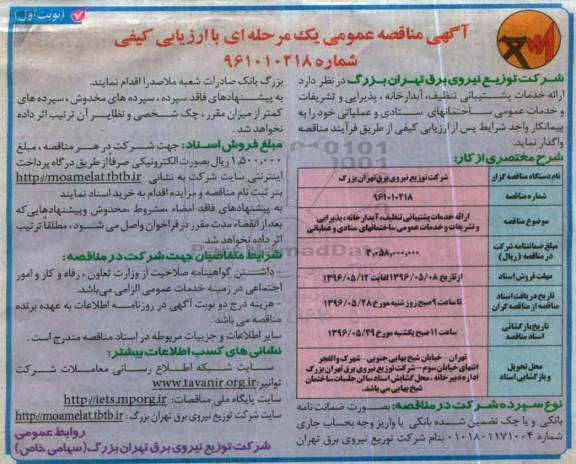 (نوبت اول)
آگهی مناقصه عمومی یک مرحله ای با ارزیابی کیفی
شماره ۹۶۱۰۱۰۲۱۸
شرکت توزیع نیروی برق تهران بزرگ در نظر دارد
ارائه خدمات پشتیبانی تنظیف، آبدارخانه ، پذیرایی و تشریفات
و خدمات عمومی ساختمانهای ستادی و عملیاتی خود را به
پیمانکار واجد شرایط پس از ارزیابی کیفی از طریق فرآیند مناقصه
واگذار نماید.
شرح مختصری از کار:
نام دستگاه مناقصه گزار
شرکت توزیع نیروی برق تهران بزرگ
شماره مناقصه
۹۶۱۰۱۰۲۱۸
موضوع مناقصه
ارائه خدمات پشتیبانی تنظیف، آبدارخانه ، پذیرایی
و تشریفات و خدمات عمومی ساختمانهای ستادی و عملیاتی
مبلغ ضمانتنامه شرکت
در مناقصه (ریال)
۳,۰۵۸,۰۰۰,۰۰۰
مهلت فروش اسناد
از تاریخ ۱۳۹۶/۰۵/۰۸ لغایت ۱۳۹۶/۰۵/۱۲
تاریخ دریافت اسناد
مناقصه از مناقصه گران
تا ساعت ۹ صبح روز شنبه مورخ ۱۳۹۶/۰۵/۲۸
تاریخ بازگشائی
اسناد مناقصه
ساعت ۱۱ صبح یکشنبه مورخ ۱۳۹۶/۰۵/۲۹
محل تحویل
و بازگشایی اسناد
تهران - خیابان شیخ بهایی جنوبی - شهرک والفجر
انتهای خیابان سوم - شرکت توزیع نیروی برق تهران بزرگ
اداره دبیرخانه ، محل گشایش اسناد سالن جلسات ساختمان
شیخ بهایی می باشد.
نوع سپرده شرکت در مناقصه: بصورت ضمانت نامه
بانکی و یا چک تضمین شده بانکی یا واریز وجه بحساب جاری
شماره ۰۱۰۱۸۰۱۱۷۱۰۰۴ بنام شرکت توزیع نیروی برق تهران
بزرگ بانک صادرات شعبه ملاصدرا اقدام نمایند.
به پیشنهادهای فاقد سپرده ، سپرده های مخدوش ، سپرده های
کمتر از میزان مقرر ، چک شخصی و نظایر آن ترتیب اثر داده
نخواهد شد.
مبلغ فروش اسناد: جهت شرکت در هر مناقصه ، مبلغ
۱,۵۰۰,۰۰۰ ریال بصورت الکترونیکی صرفاً از طریق درگاه پرداخت
اینترنتی سایت شرکت به نشانی http://moamelat.tbtb.ir
بنر ثبت نام مناقصه و مزایده اقدام به خرید اسناد نمایند
به پیشنهادهای فاقد امضاء ،مشروط ،مخدوش و پیشنهادهایی که
بعد از انقضاء مدت مقرر در فراخوان واصل می شود ، مطلقاً ترتیب
اثر داده نخواهد شد.
شرایط متقاضیان جهت شرکت در مناقصه:
- داشتن گواهینامه صلاحیت از وزارت تعاون ، رفاه و کار و امور
اجتماعی در زمینه خدمات عمومی الزامی می‌باشد.
- هزینه درج دو نوبت آگهی در روزنامه اطلاعات به عهده برنده
مناقصه می باشد.
سایر اطلاعات و جزییات مربوطه در اسناد مناقصه مندرج است .
نشانی های کسب اطلاعات بیشتر:
سایت شبکه اطلاع رسانی معاملات شرکت
توانیر: www.tavanir.org.ir
سایت پایگاه ملی مناقصات: http://iets.mporg.ir
سایت شرکت توزیع نیروی برق تهران بزرگ : http://moamelat.tbtb.ir
روابط عمومی
شرکت توزیع نیروی برق تهران بزرگ(سهامی خاص)